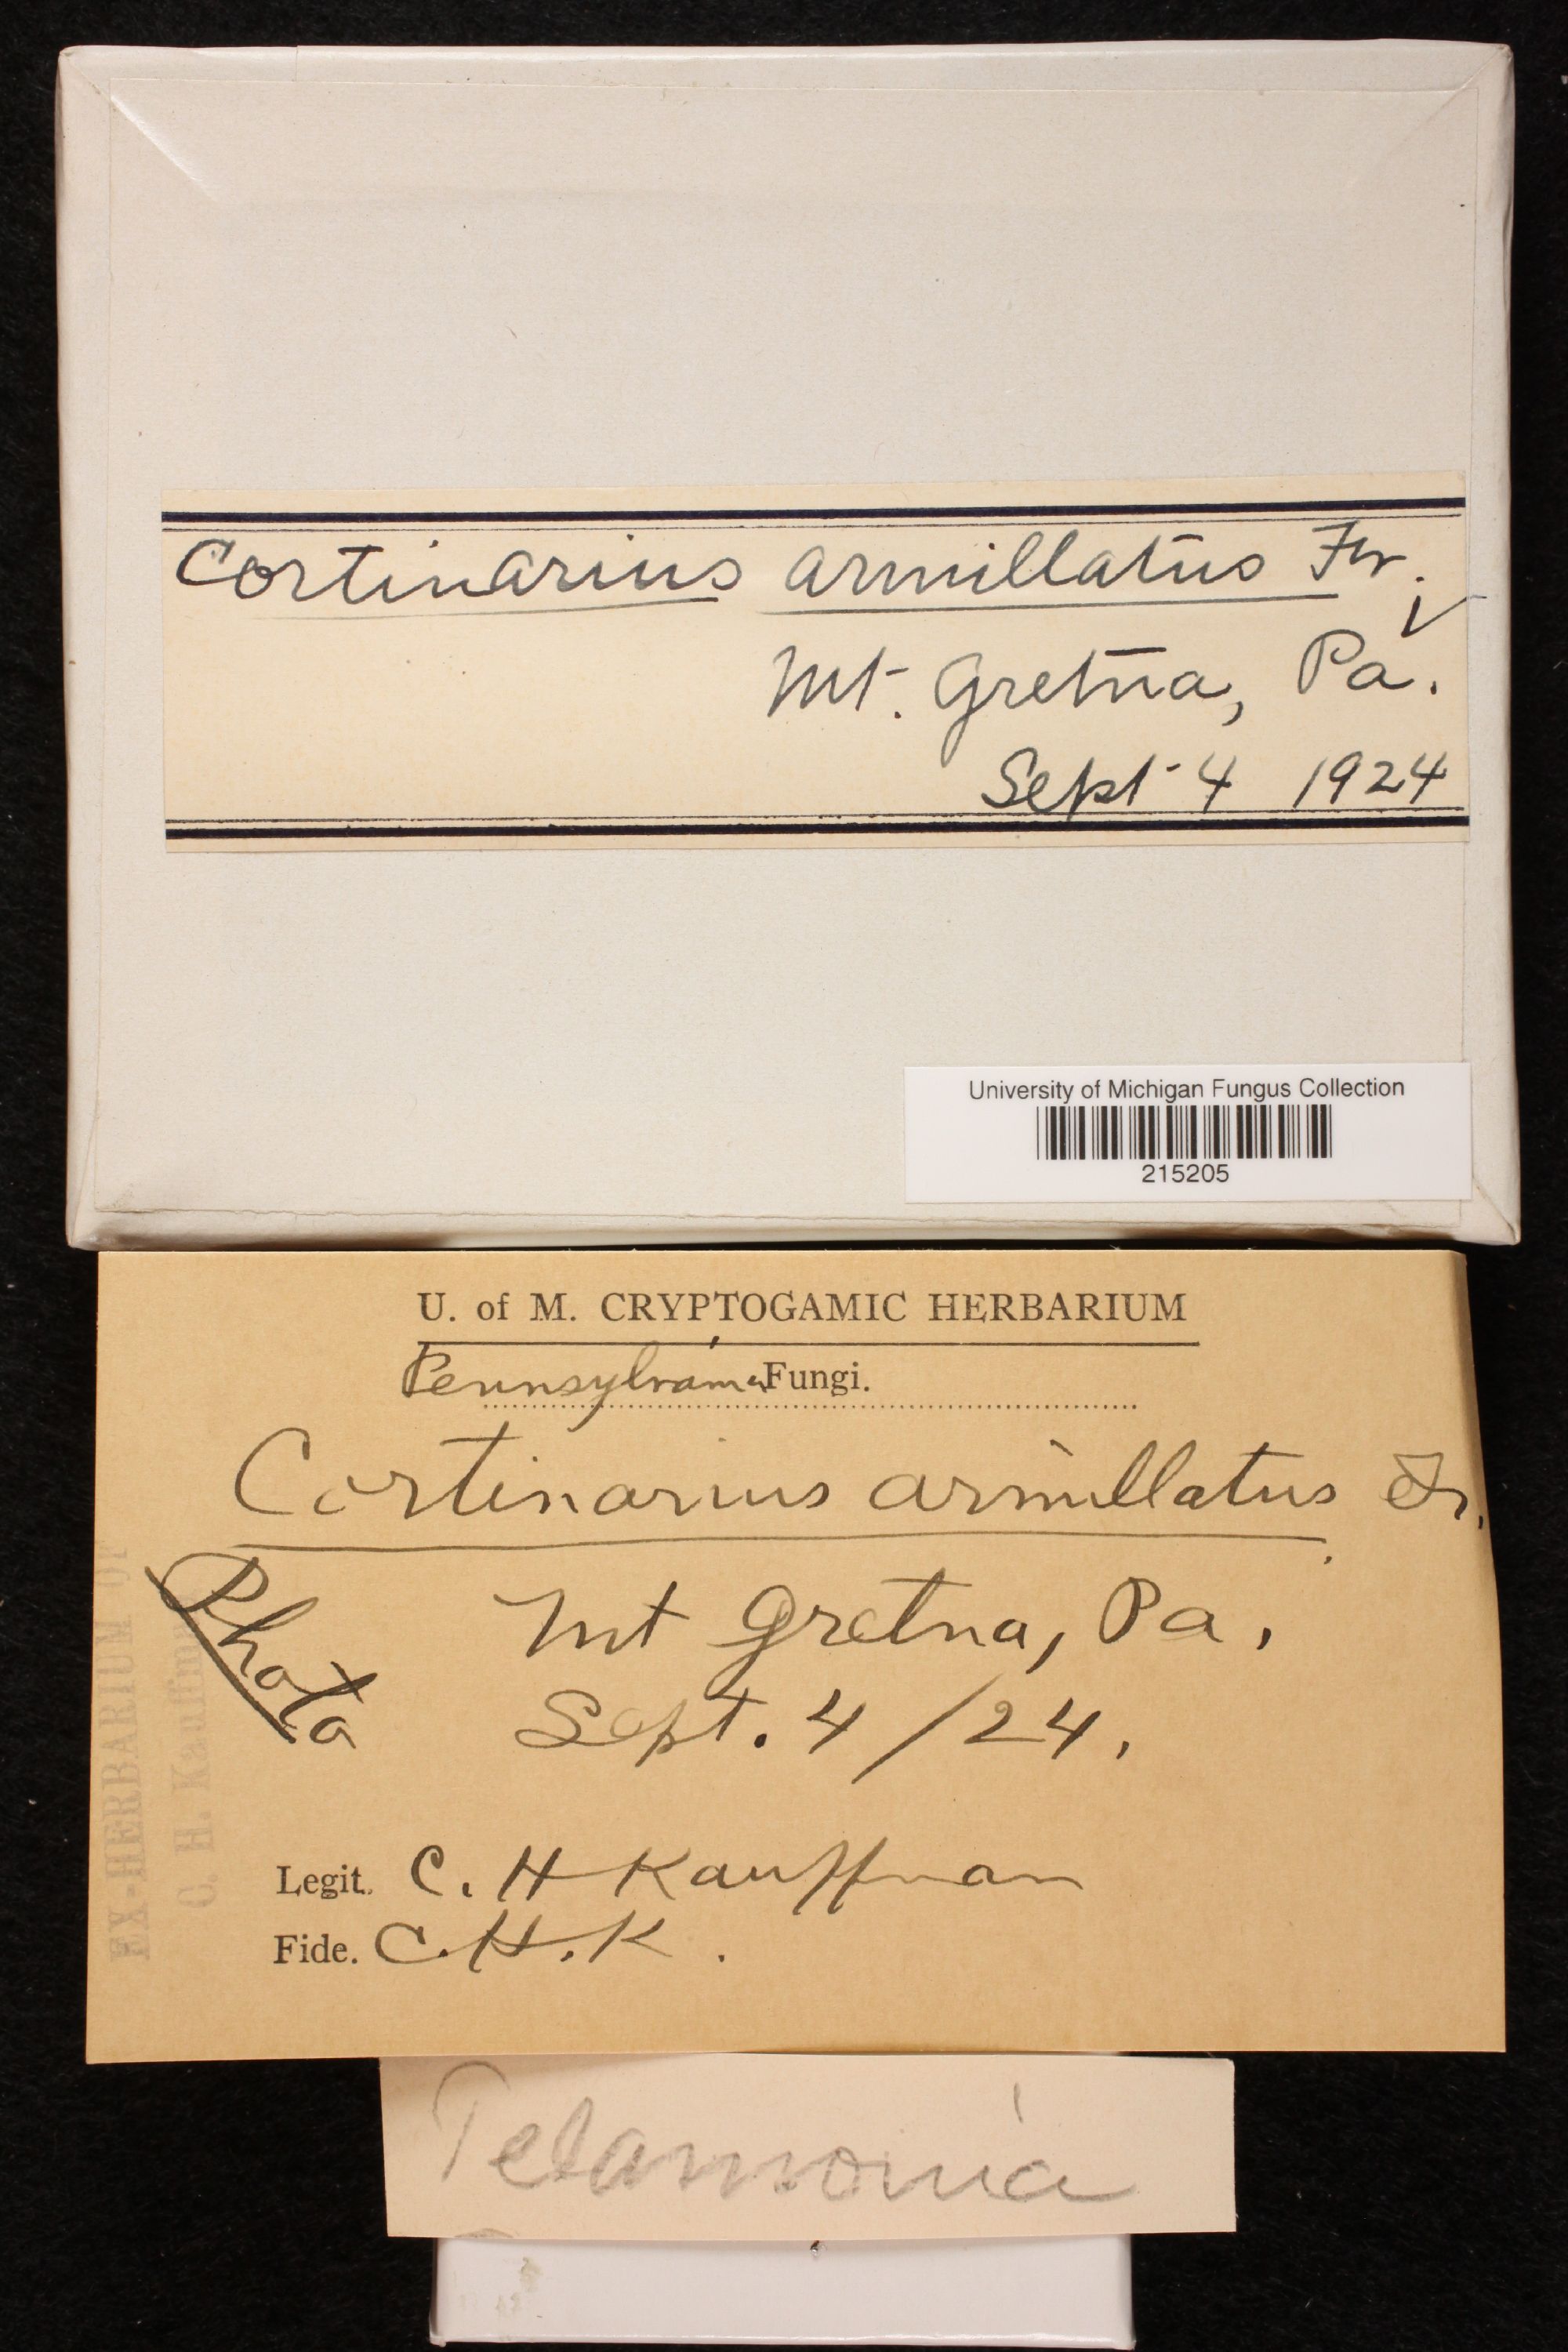 Cortinarius armillatus Fr.
Mt. Gretna, Pa.
Sept 4 1924
University of Michigan Fungus Collection
215205
U. of M. CRYPTOGAMIC HERBARIUM
Pennsylvania Fungi.
Cortinarius armillatus Fr.
Photo
Mt Gretna, Pa.
Sept. 4/24.
Legit. C. H Kauffman
Fide. C.H.K.
EX-HERBARIUM OF
C. H. Kauffman
Telamonia